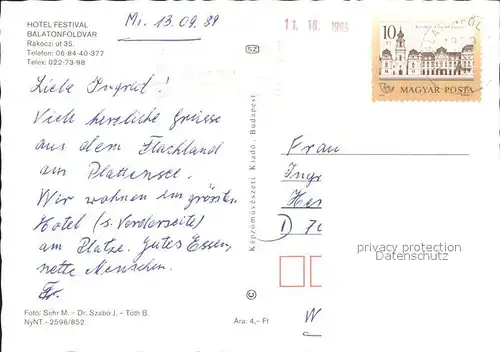 HOTEL FESTIVAL
BALATONFÖLDVÁR
Rákóczi út 35.
Telefon: 06-84-40-377
Telex: 022-73-98
Mi. 13.09.89
Liebe Ingrid!
Viele herzliche Grüsse
aus dem Flachland
am Plattensee.
Wir wohnen im grössten
Hotel (s. Vorderseite)
am Platze. Gutes Essen,
nette Menschen.
Fotó: Sehr M. – Dr. Szabó J. – Tóth B.
NyNT.–2596/852.
Ára: 4,– Ft
SZ
Képzőművészeti Kiadó, Budapest
©
11. 10. 1989
10
MAGYAR POSTA
Frau
Ingr
Her
D 7
W
privacy protection
Datenschutz